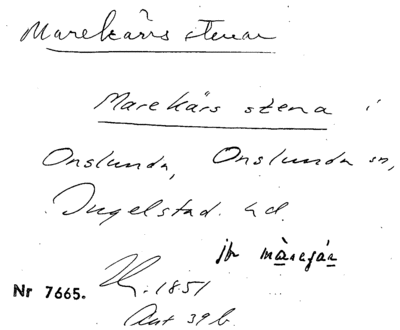 Marekärrs stenar
Marekärs stena i
Onslunda, Onslunda sn,
Ingelstad. hd.
jfr
Nr 7665. 1851
39 b